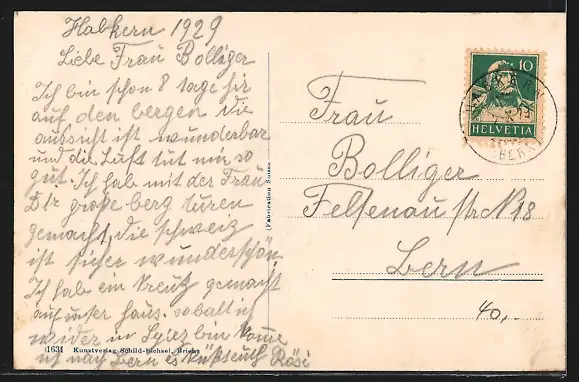 Habkern 1929
Liebe Frau Bolliger
Ich bin schon 8 tage hir
auf den bergen die
aussicht ist wunderbar
und die Luft tut mir so
gut. Ich hab mit der Frau
Dr große berg turen
gemacht, die schweiz
ist sicher wunderschön
Ich hab ein kreuz gemacht
auf unser haus. sobalt ich
wider in Spiez bin komme
ich nach Bern es küßt euch Rösi
1631 Kunstverlag Schild-Bichsel, Brienz
(Fabrication Suisse
10
HELVETIA
HABKERN
(BERN)
Frau
Bolliger
Felsenaustr N 18
Bern
40,-